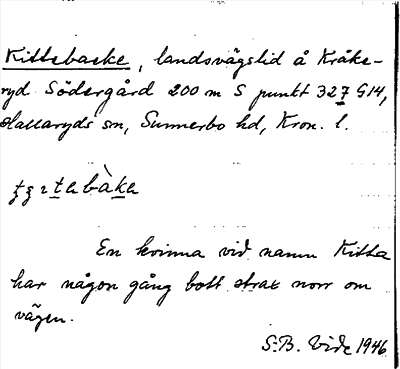 Kittebacke, landsvägslid å Kråke-
ryd Södergård 200 m S punkt 327 G14,
Hallaryds sn, Sunnerbo hd, Kron. l.
En kvinna vid namn Kitta
har någon gång bott strax norr om
vägen.
S.-B. Vide 1946